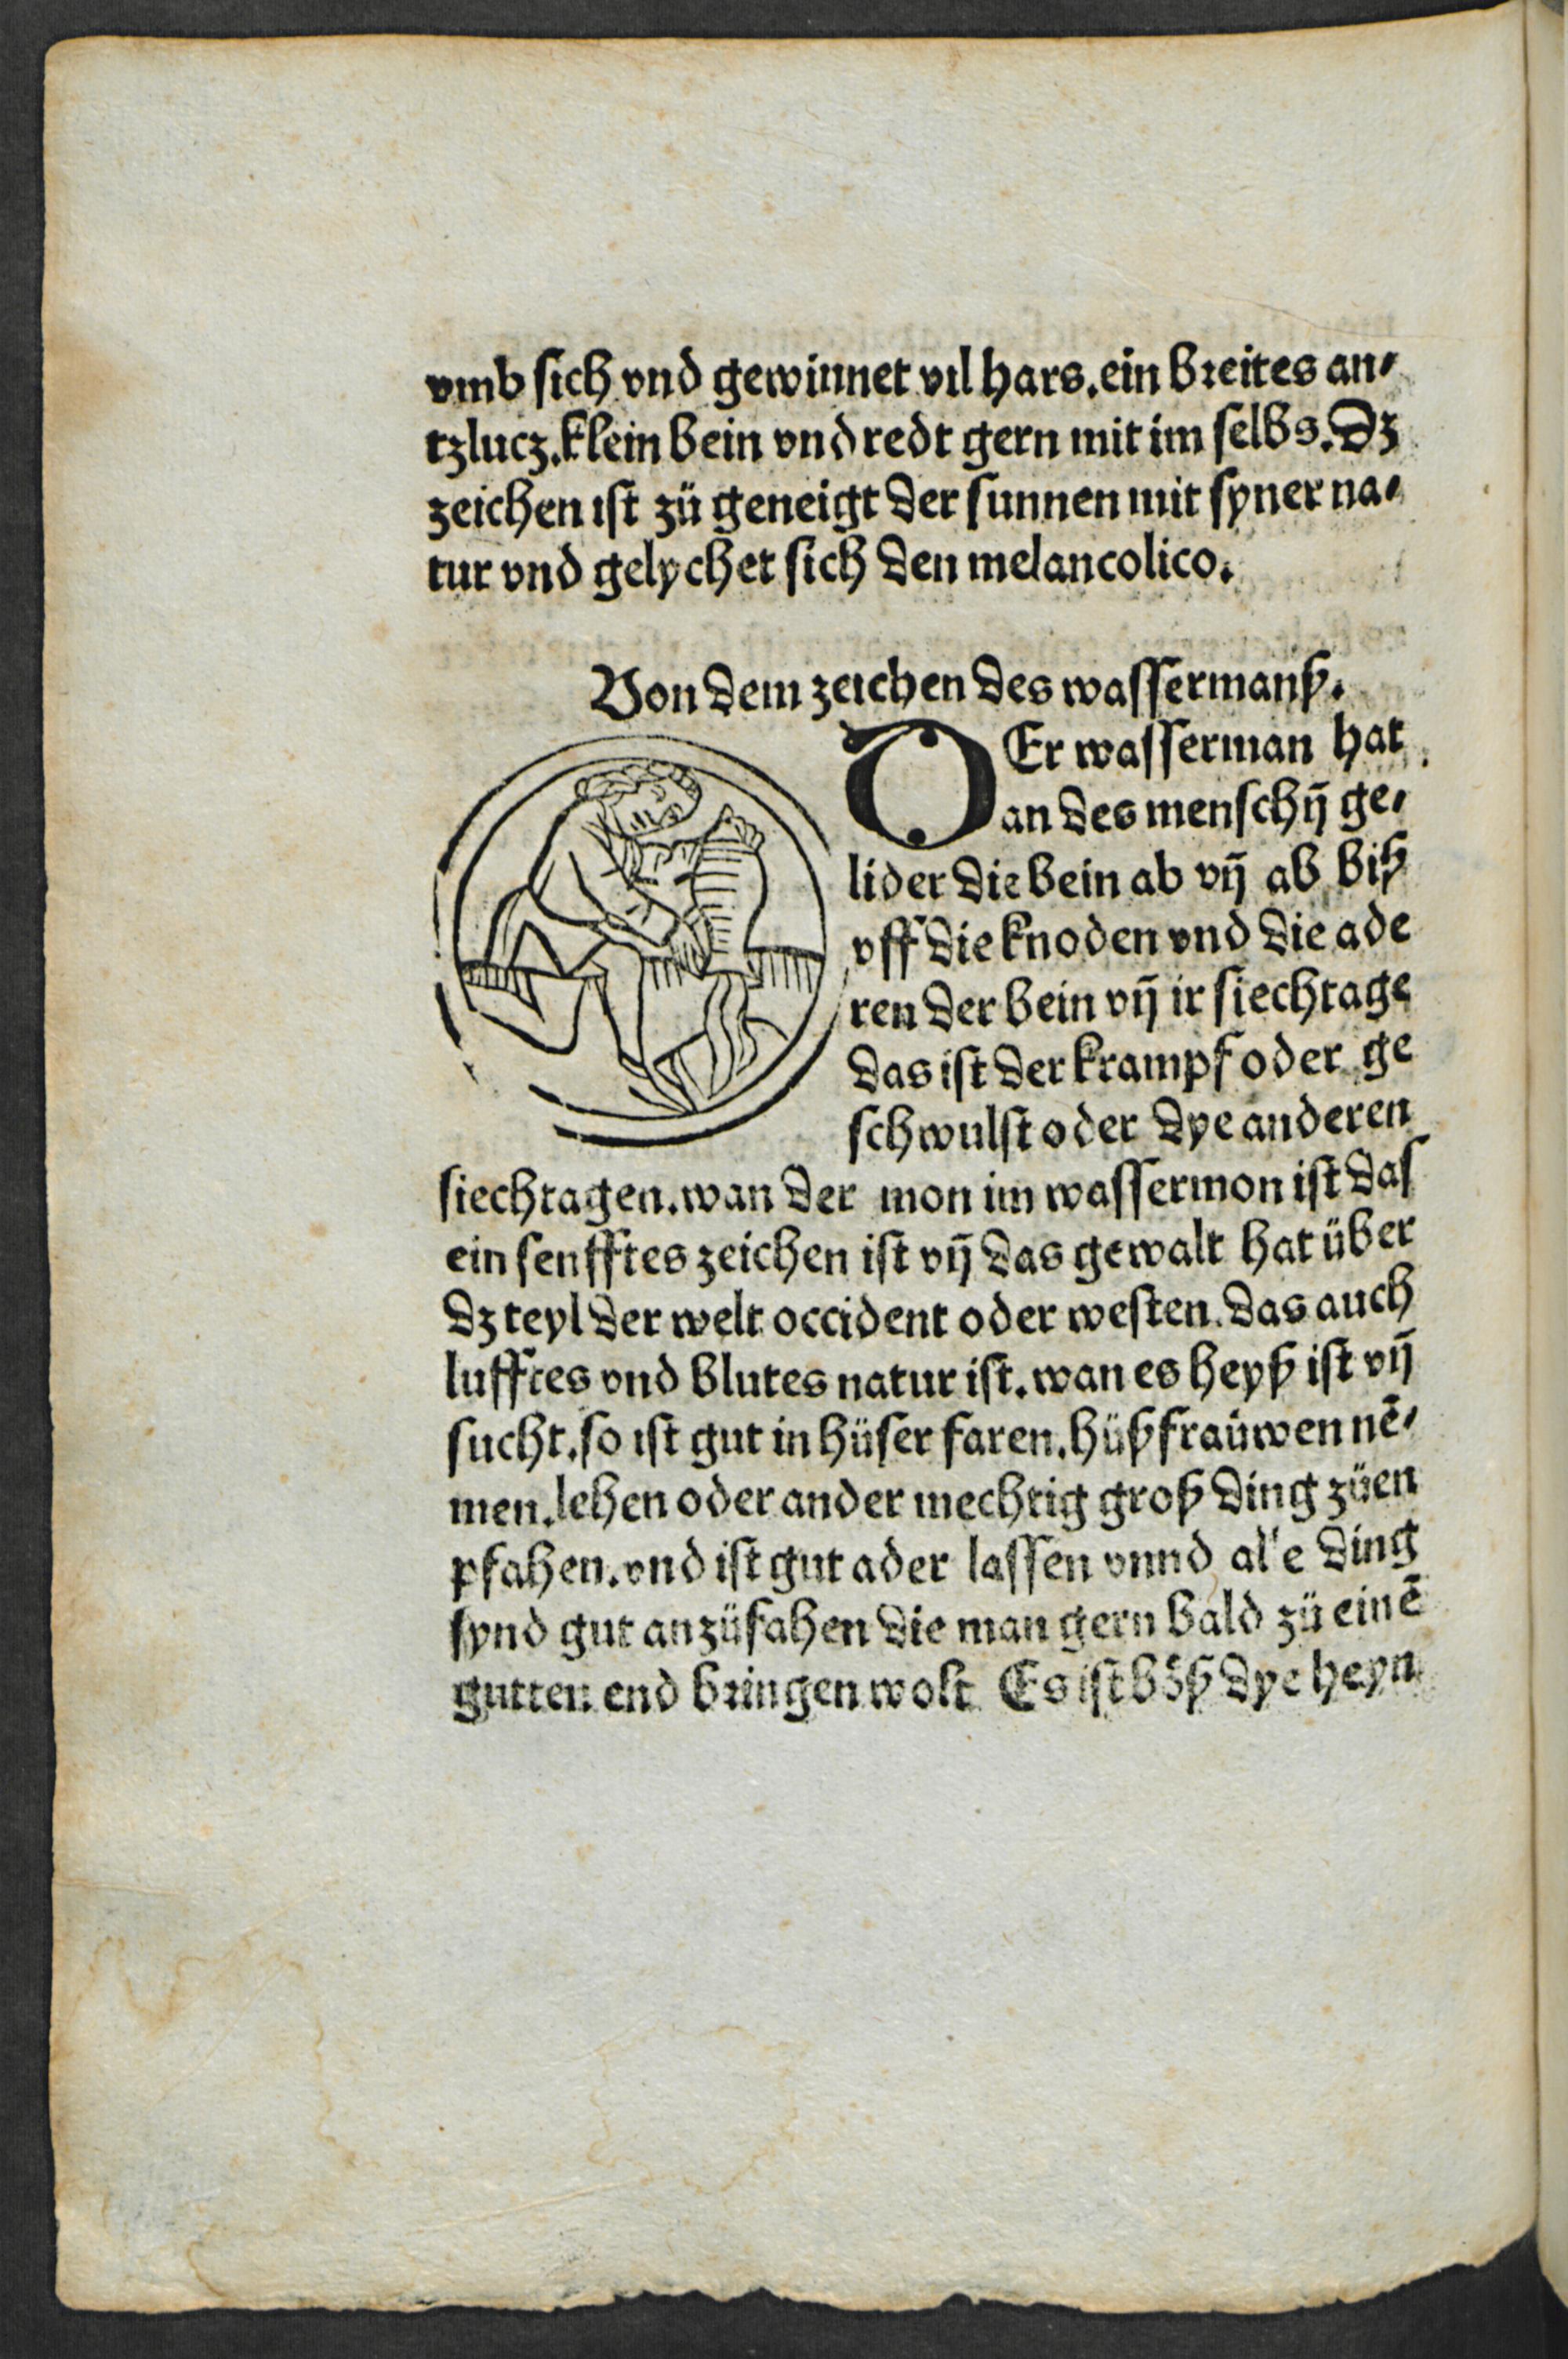 vmb sich vnd gewinnet vil hars. ein breites an⸗
tzlucz. klein bein vnd redt gern mit im selbs. Dz
zeichen ist zü geneigt der sunnen mit syner na⸗
tur vnd gelychet sich den melancolico.
Von dem zeichen des wassermanß.
DEr wasserman hat
an des menschņ̄ ge⸗
lider die bein ab vn̄ ab biß
vff die knoden vnd die ade
ren der bein vn̄ ir siechtage
das ist der krampf oder ge
schwulst oder dye anderen
siechtagen. wan der mon im wassermon ist das
ein senfftes zeichen ist vn̄ das gewalt hat über
dz teyl der welt occident oder westen. das auch
lufftes vnd blutes natur ist. wan es heyß ist vn̄
fucht. so ist gut in hüser faren. hüßfrauwen nē⸗
men. lehen oder ander mechtig groß ding züen
pfahen. vnd ist gut ader lassen vnnd alle ding
synd gut anzüfahen die man gern bald zü einē
gutten end bringen wolt Es ist böß dye heyn